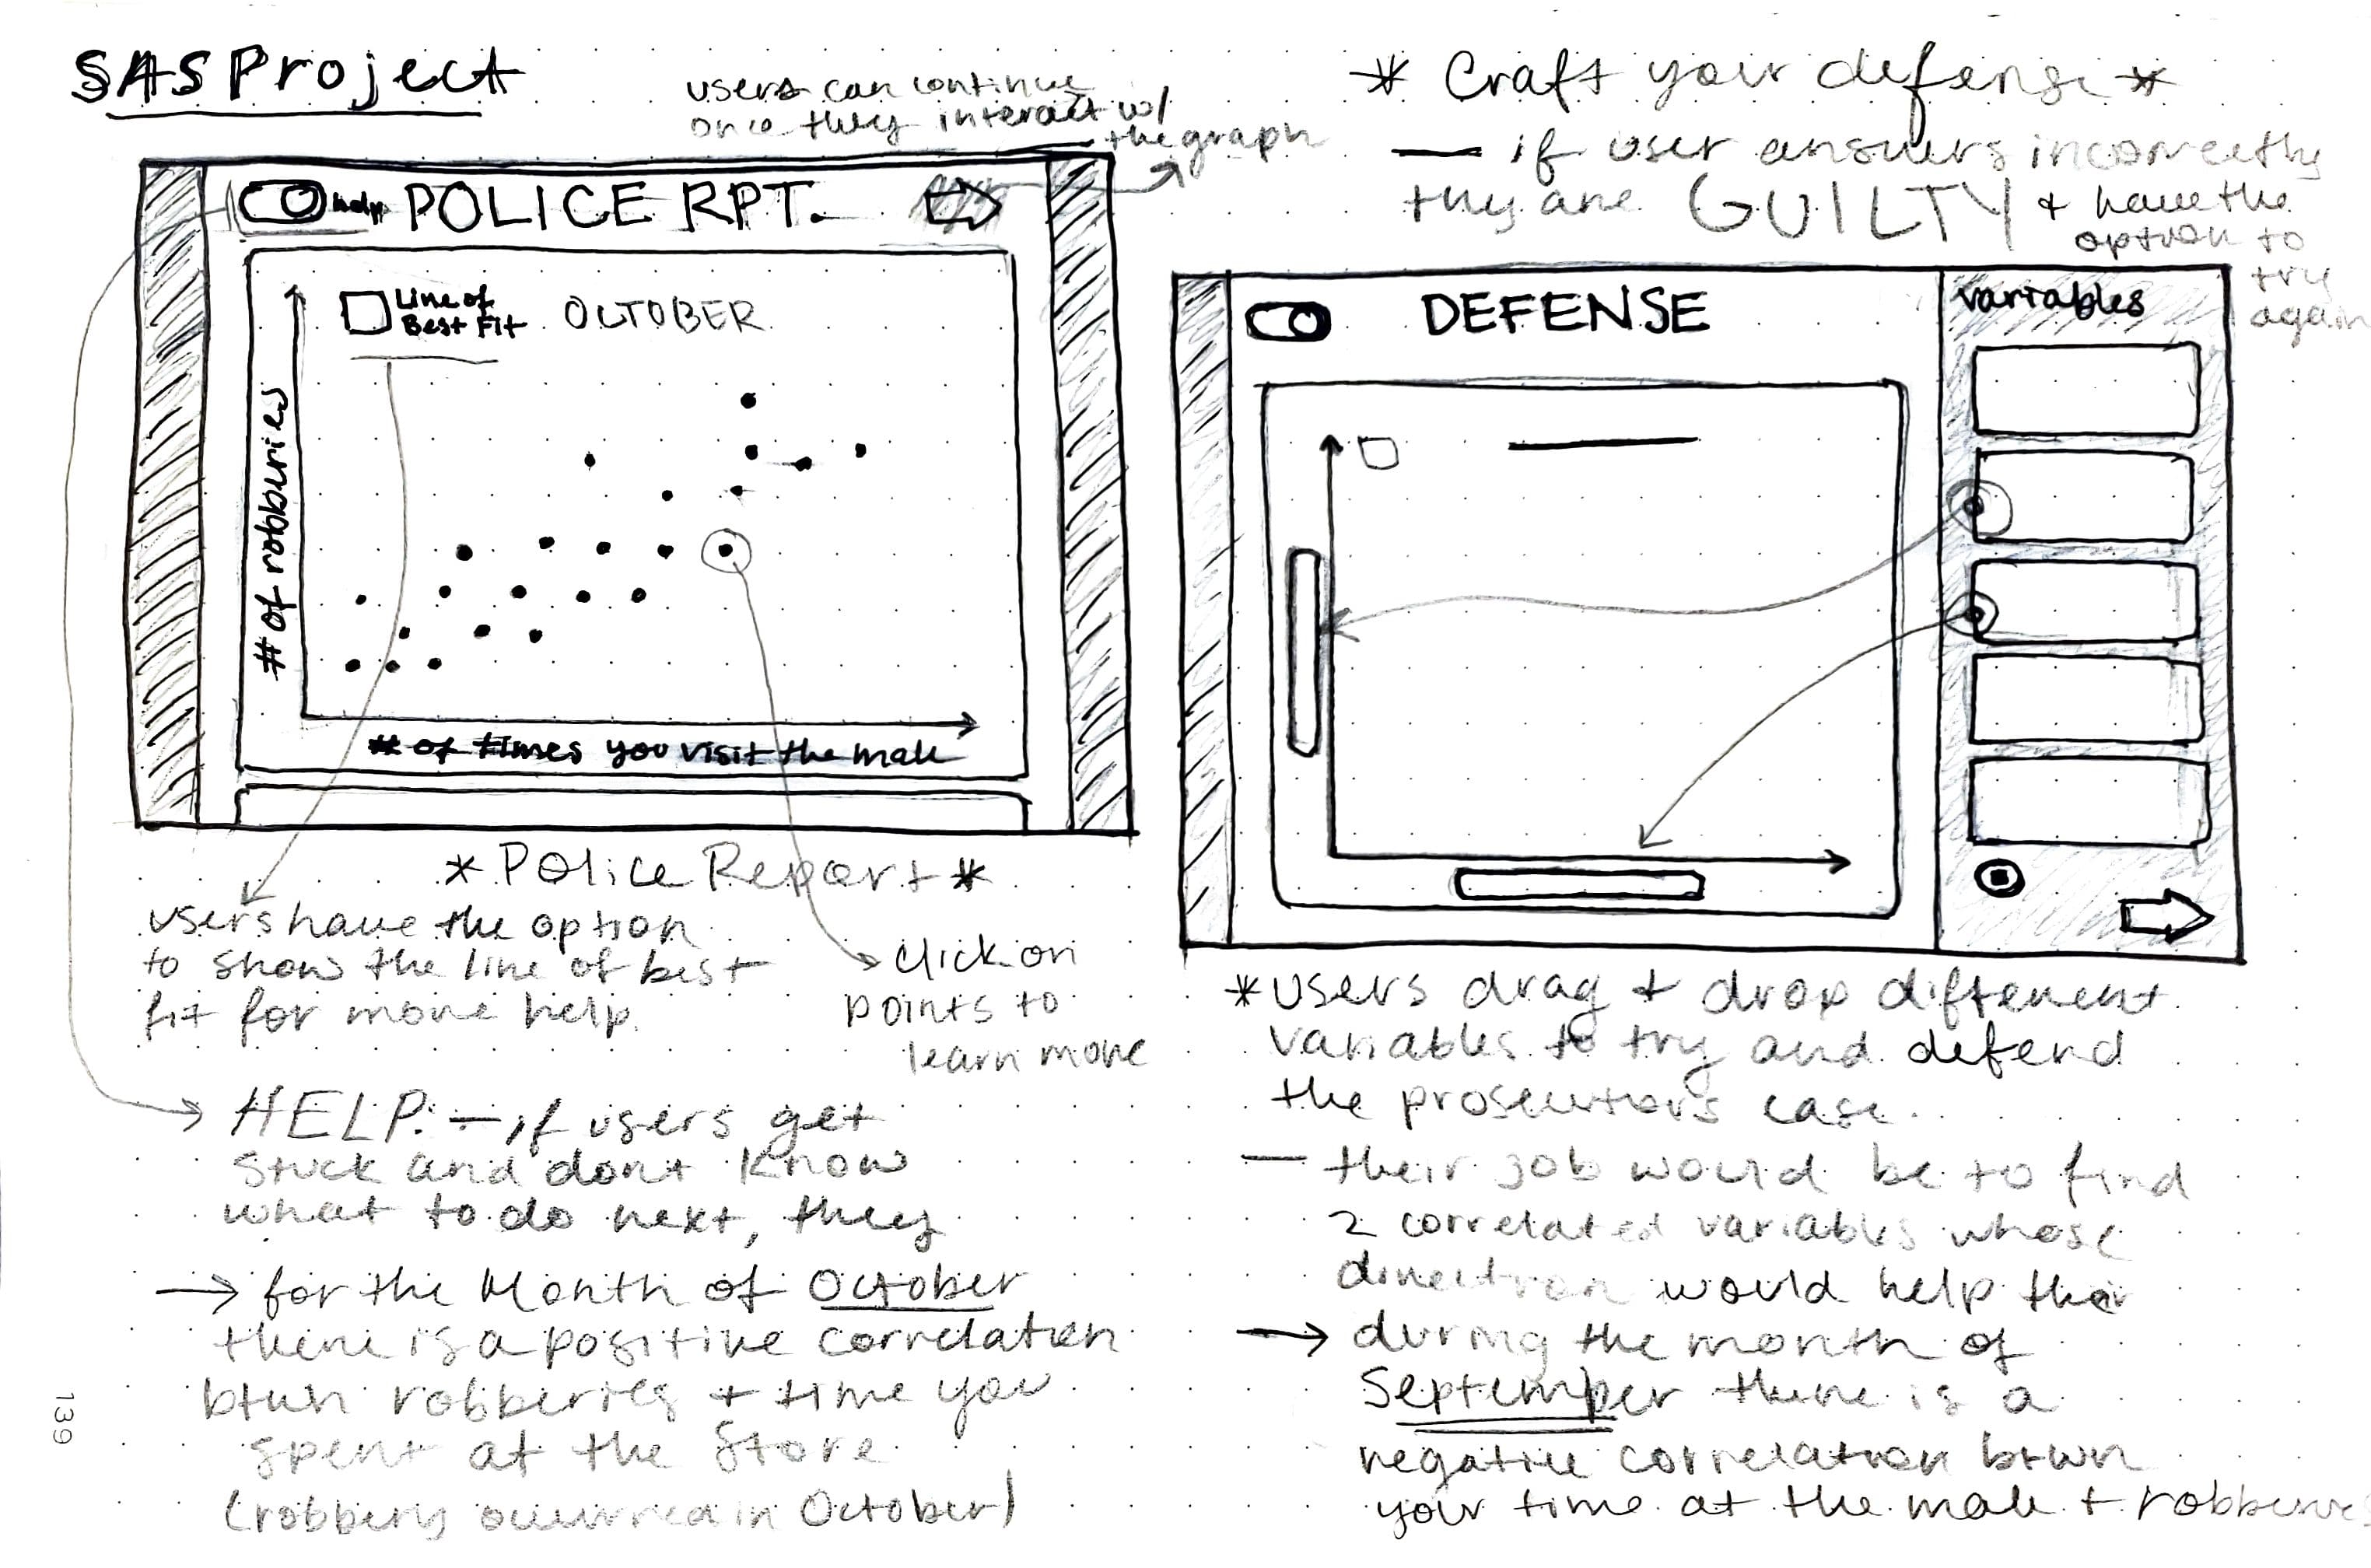 SAS Project
users can continue
once they interact w/
the graph
help
POLICE RPT.
Line of
Best Fit
OCTOBER
# of robburies
# of times you visit the mall
* Police Report *
users have the option
to show the line of best
fit for more help.
click on
points to
learn more
HELP: — if users get
stuck and dont know
what to do next, they
→ for the Month of October
there is a positive correlation
btwn robberies + time you
spent at the store
(robbery occurred in October)
139
* Craft your defense *
— if user answers incorrectly
they are GUILTY + have the
option to
try
again
DEFENSE
variables
* users drag + drop different
variables to try and defend
the prosecutors case.
— their job would be to find
2 correlated variables whose
direction would help their
→ during the month of
September there is a
negative correlation btwn
your time at the mall + robberies